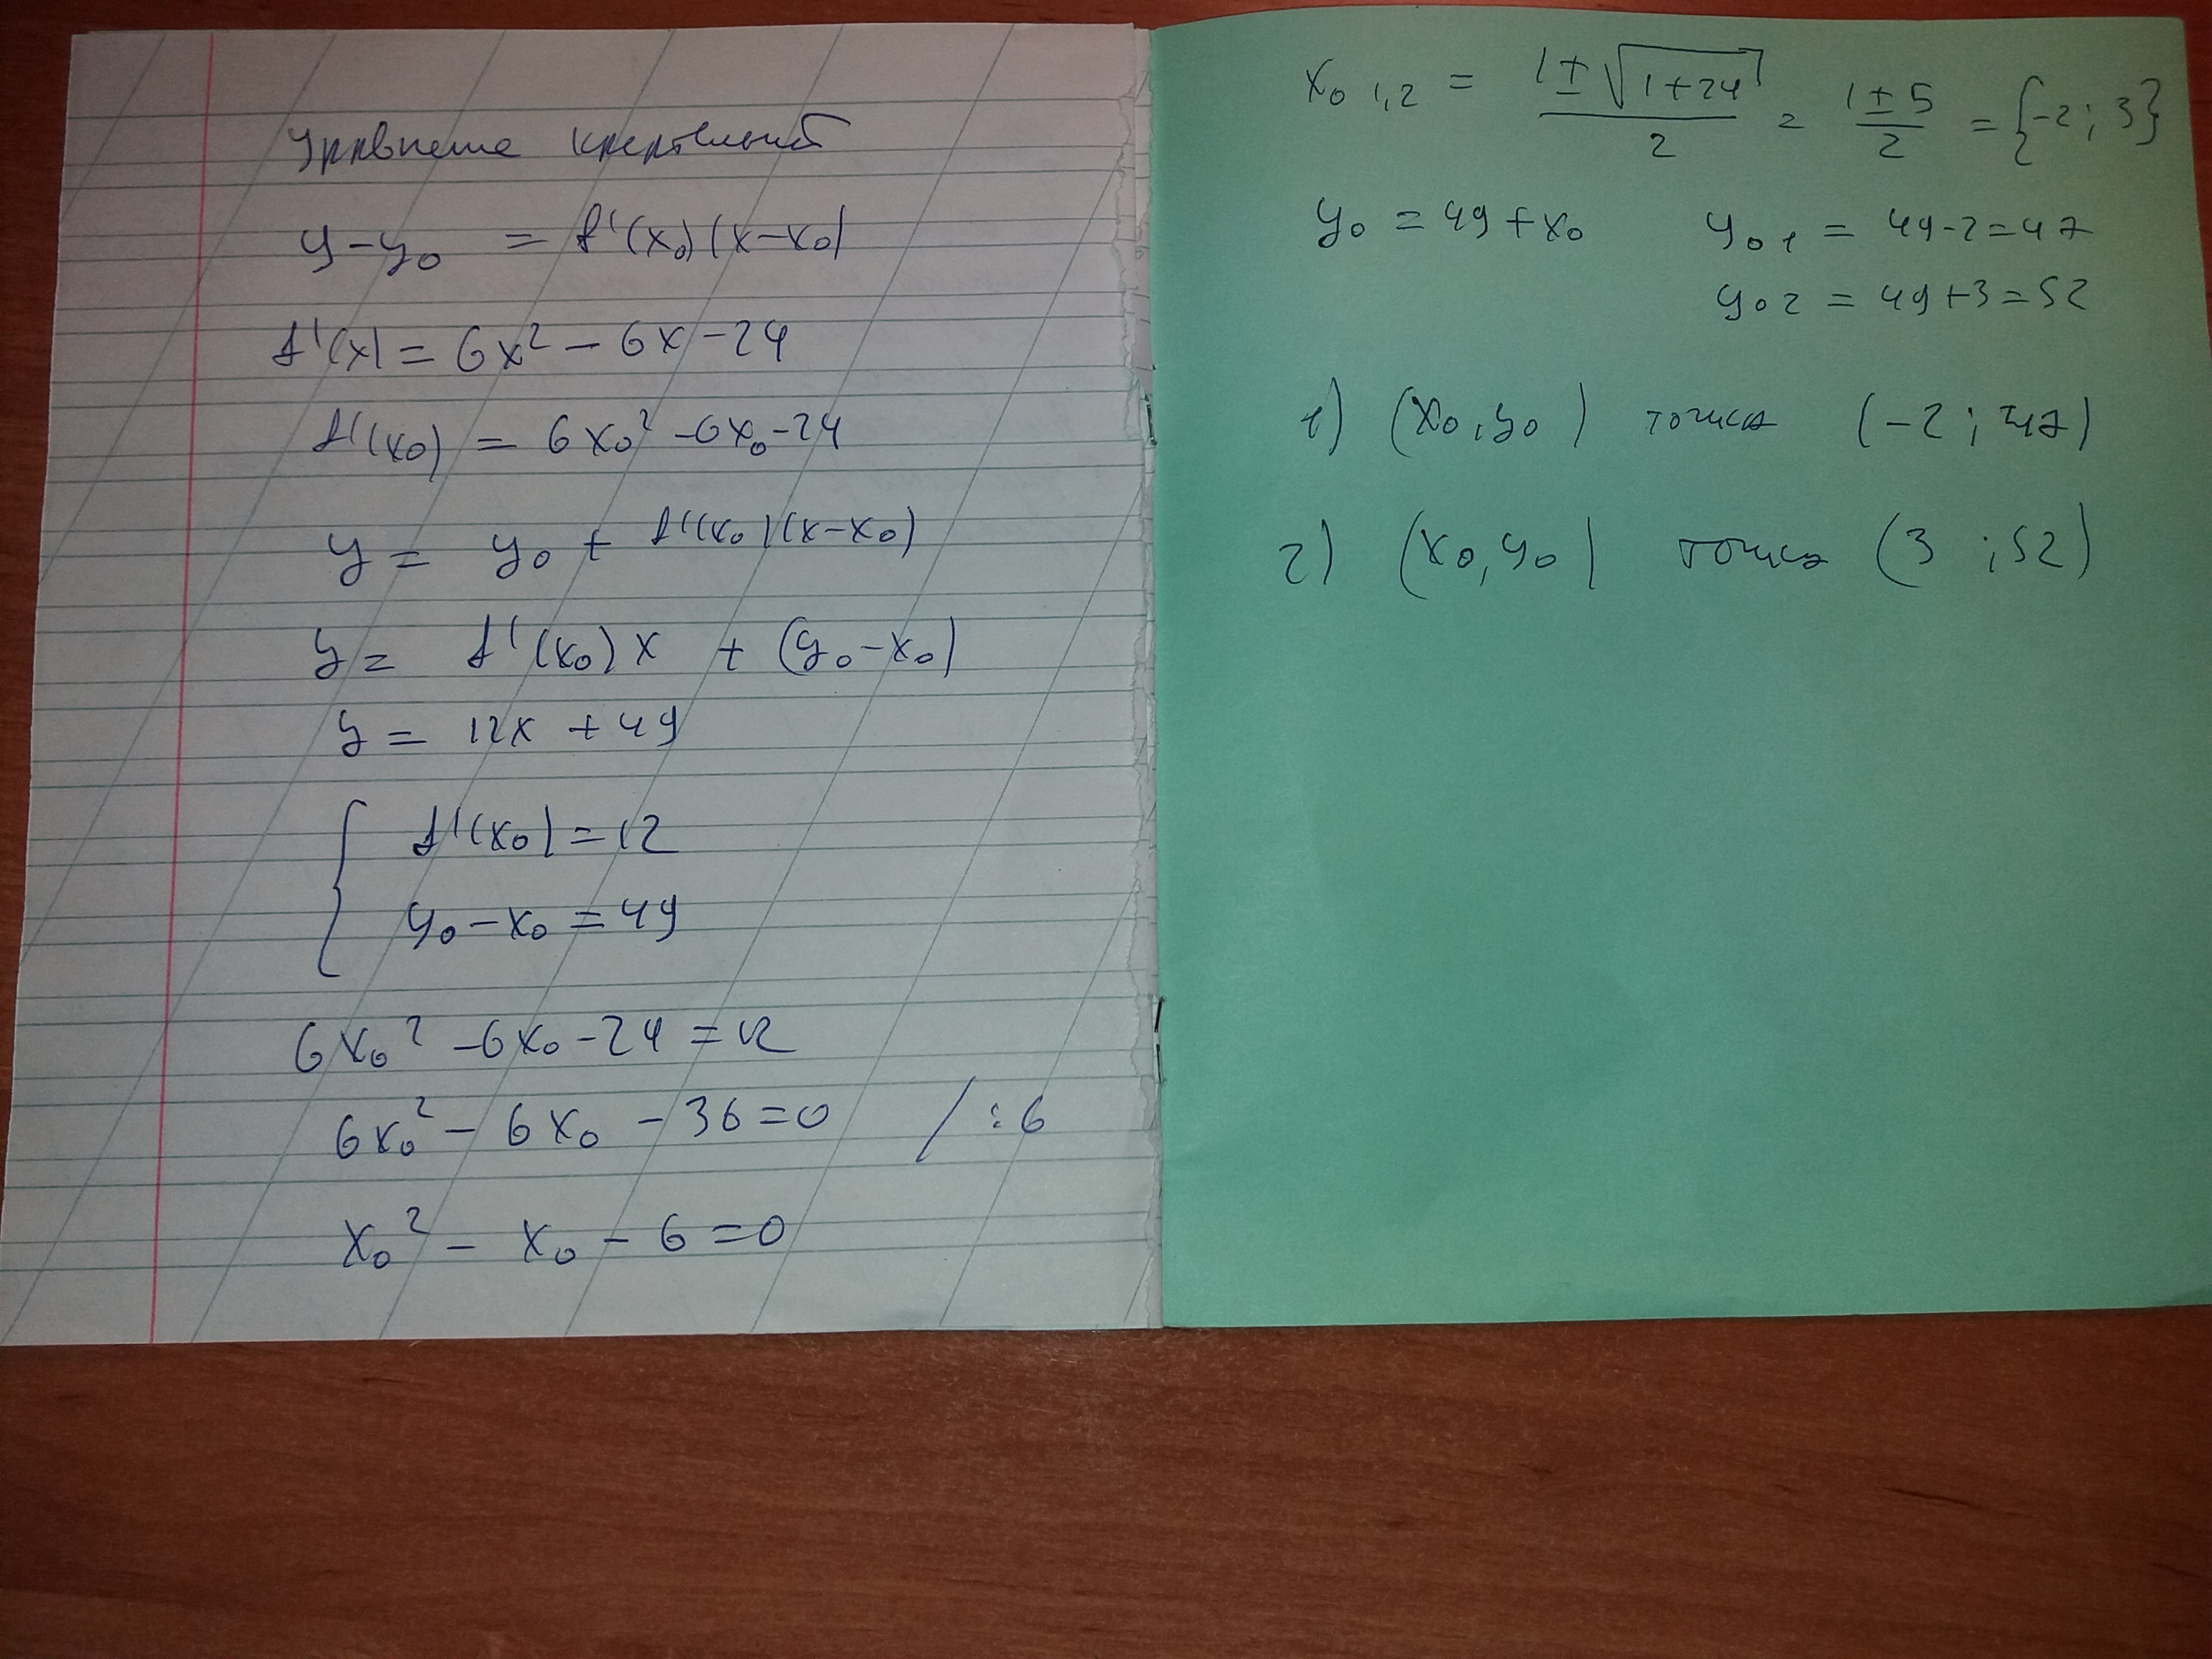 Уравнение касательной
y - y₀ = f'(x₀)(x-x₀)
f'(x) = 6x² - 6x - 24
f'(x₀) = 6x₀² - 6x₀ - 24
y = y₀ + f'(x₀)(x-x₀)
y = f'(x₀)x + (y₀-x₀)
y = 12x + 49
{ f'(x₀) = 12
y₀ - x₀ = 49
6x₀² - 6x₀ - 24 = 12
6x₀² - 6x₀ - 36 = 0 / :6
x₀² - x₀ - 6 = 0
x₀ 1,2 = (1 ± √(1+24))/2 = (1 ± 5)/2 = {-2; 3}
y₀ = 49 + x₀ y₀₁ = 49-2 = 47
y₀₂ = 49+3 = 52
1) (x₀, y₀) точка (-2; 47)
2) (x₀, y₀) точка (3; 52)